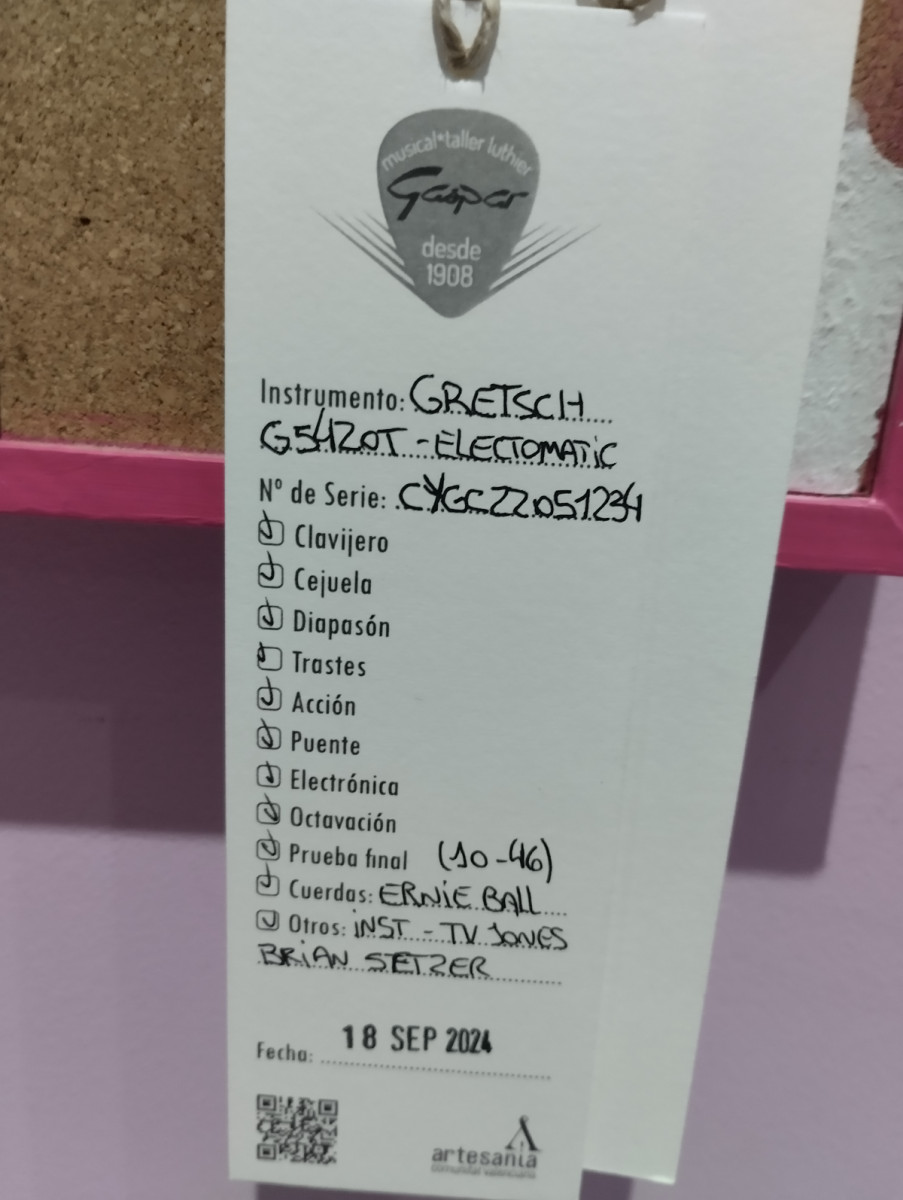 musical*taller luthier
Gaspar
desde
1908
Instrumento: GRETSCH
G5420T - ELECTOMATIC
Nº de Serie: CYGC22051234
Clavijero
Cejuela
Diapasón
Trastes
Acción
Puente
Electrónica
Octavación
Prueba final (10-46)
Cuerdas: ERNIE BALL
Otros: INST - TV JONES
BRIAN SETZER
Fecha: 18 SEP 2024
artesanía
comunitat valenciana